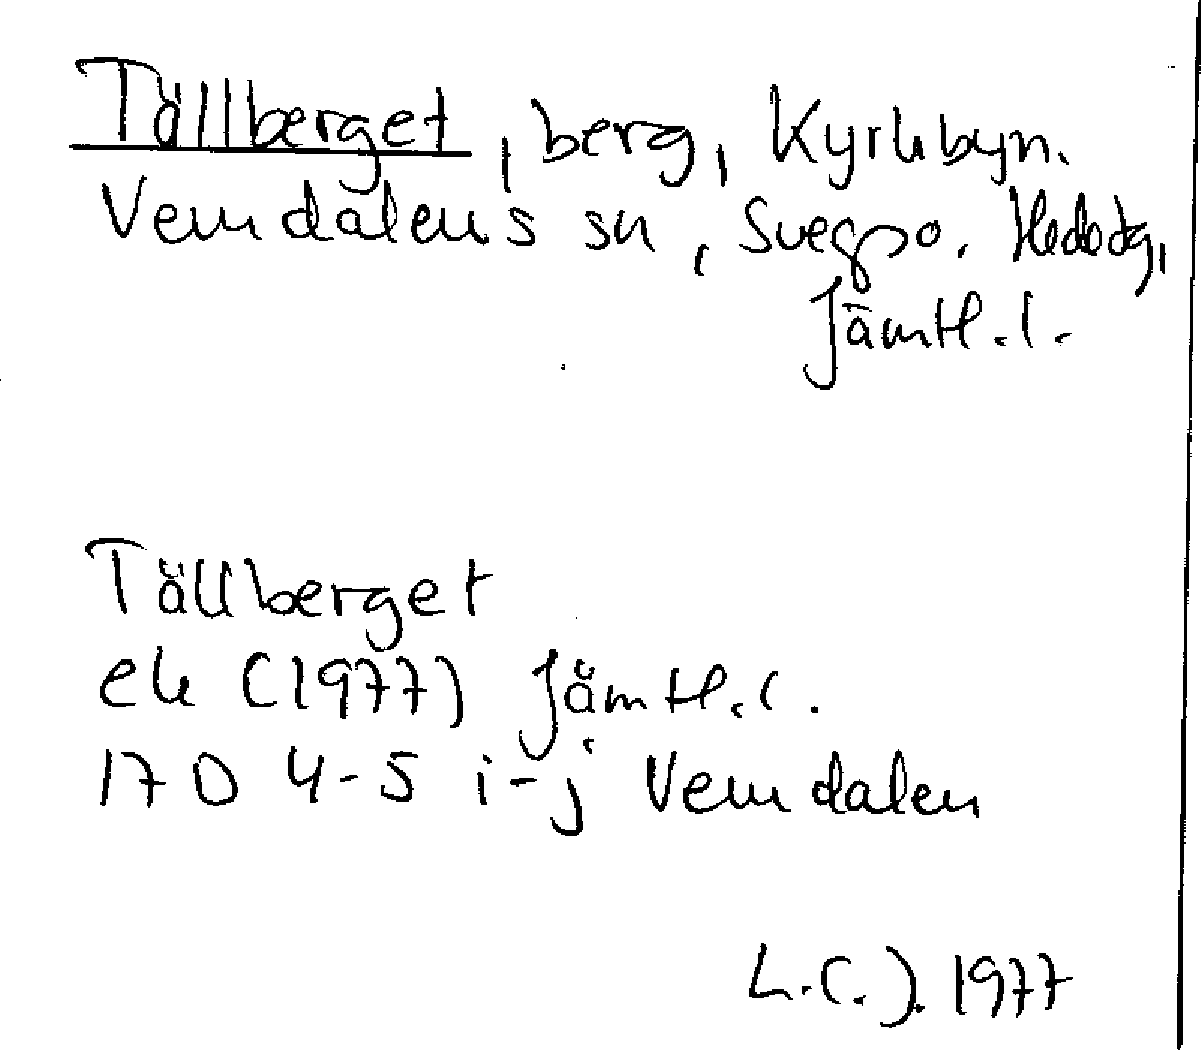 Tällberget, berg, Kyrkbyn.
Vemdalens sn, Svegs po.
Jämtl. l.
Tällberget
ek (1977) Jämtl. l.
17 D 4-5 i-j Vemdalen
L.C.J. 1977